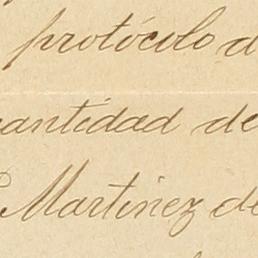 protócolo d
cantidad de
Martinez de